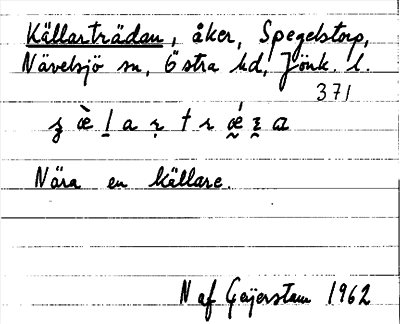 Källarträdan, åker, Spegelstorp,
Nävelsjö sn, Östra hd, Jönk. l.
371
Nära en källare.
N af Geijerstam 1962